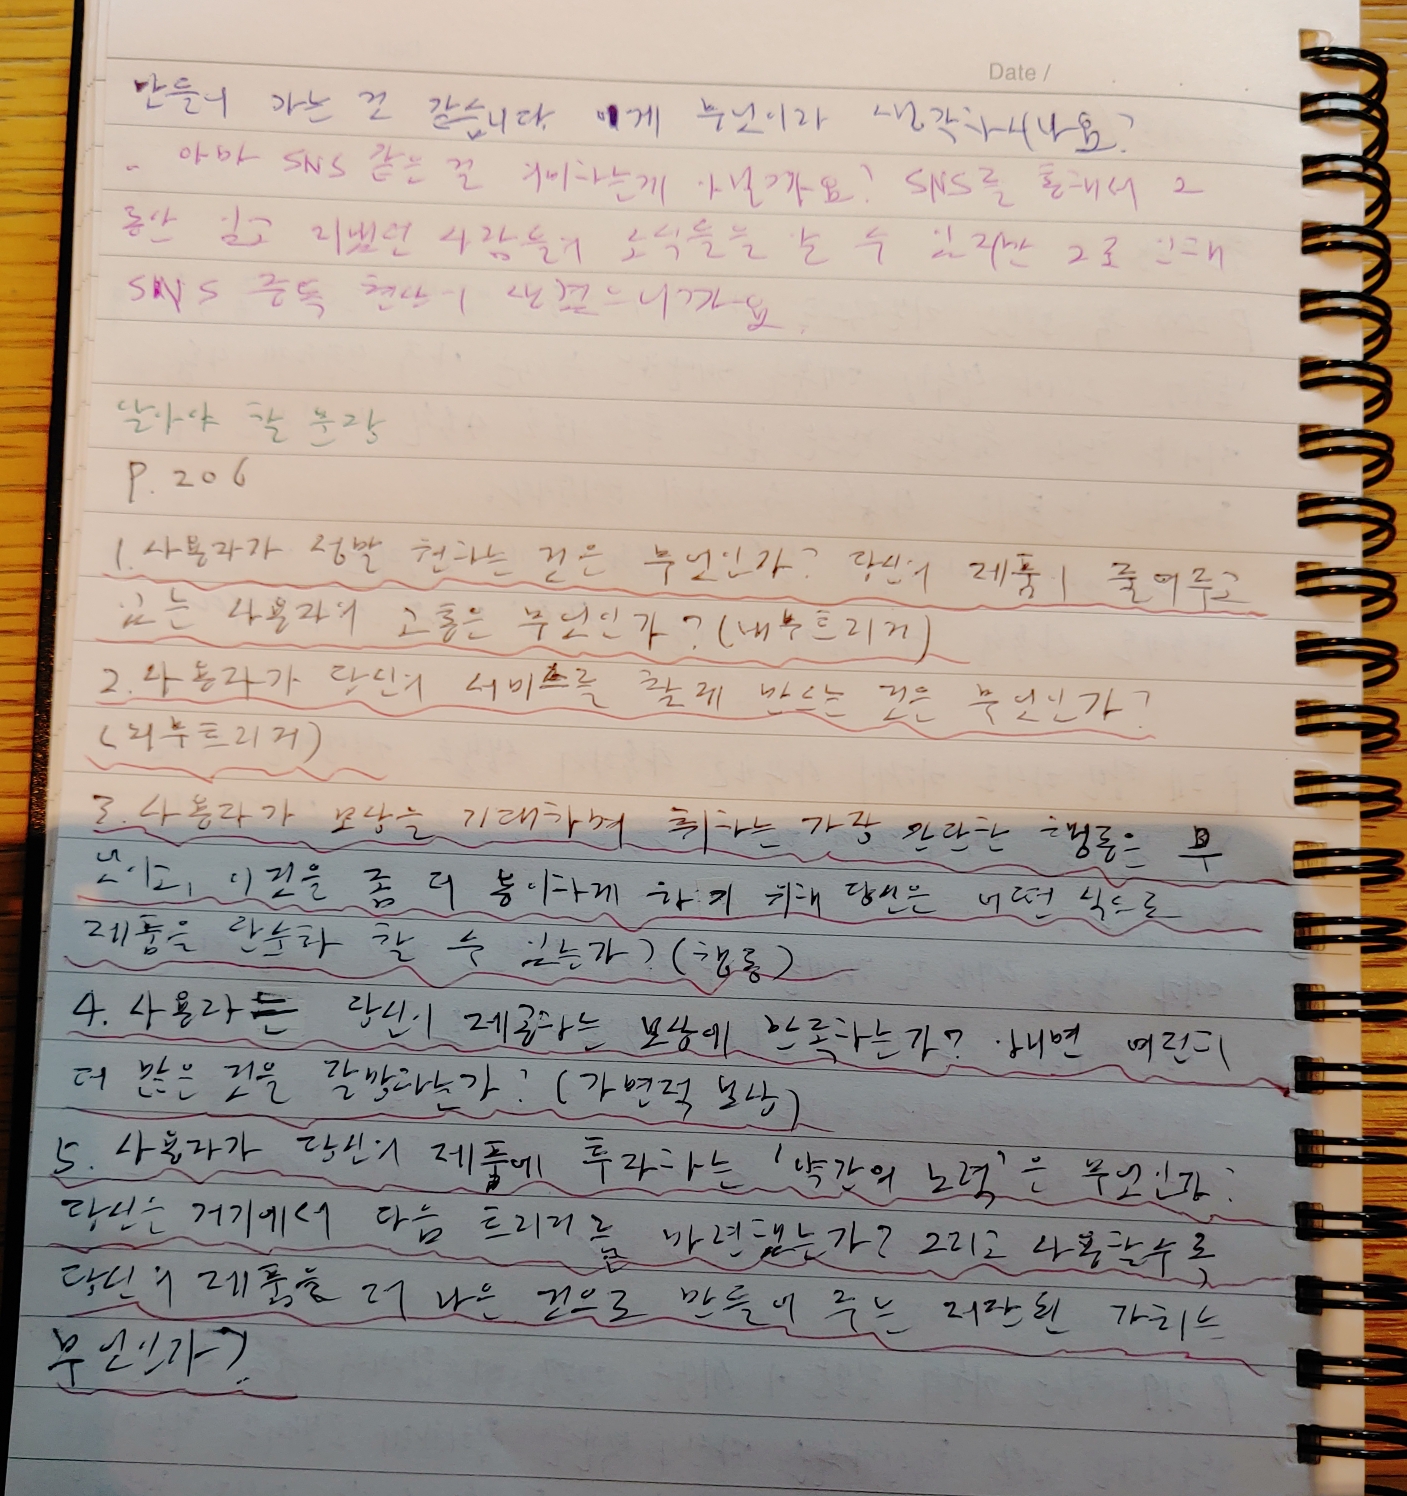 Date /
만들어 가는 것 같습니다. 이게 무엇이라 생각하시나요?
- 아마 SNS 같은 걸 얘기하는게 아닐까요? SNS를 통해서 그
동안 잊고 지냈던 사람들의 소식들을 볼 수 있지만 그로 인해
SNS 중독 현상이 생겼으니까요.
남아야 할 문장
P. 206
1. 사용자가 정말 원하는 것은 무엇인가? 당신의 제품이 줄여주고
있는 사용자의 고통은 무엇인가? (내부트리거)
2. 사용자가 당신의 서비스를 찾게 만드는 것은 무엇인가?
(외부트리거)
3. 사용자가 보상을 기대하며 취하는 가장 간단한 행동은 무
엇이고, 이것을 좀 더 용이하게 하기 위해 당신은 어떤 식으로
제품을 단순화 할 수 있는가? (행동)
4. 사용자는 당신이 제공하는 보상에 만족하는가? 아니면 여전히
더 많은 것을 갈망하는가? (가변적 보상)
5. 사용자가 당신의 제품에 투자하는 '약간의 노력'은 무엇인가?
당신은 거기에서 다음 트리거를 마련했는가? 그리고 사용할수록
당신의 제품을 더 나은 것으로 만들어 주는 저장된 가치는
무엇인가?